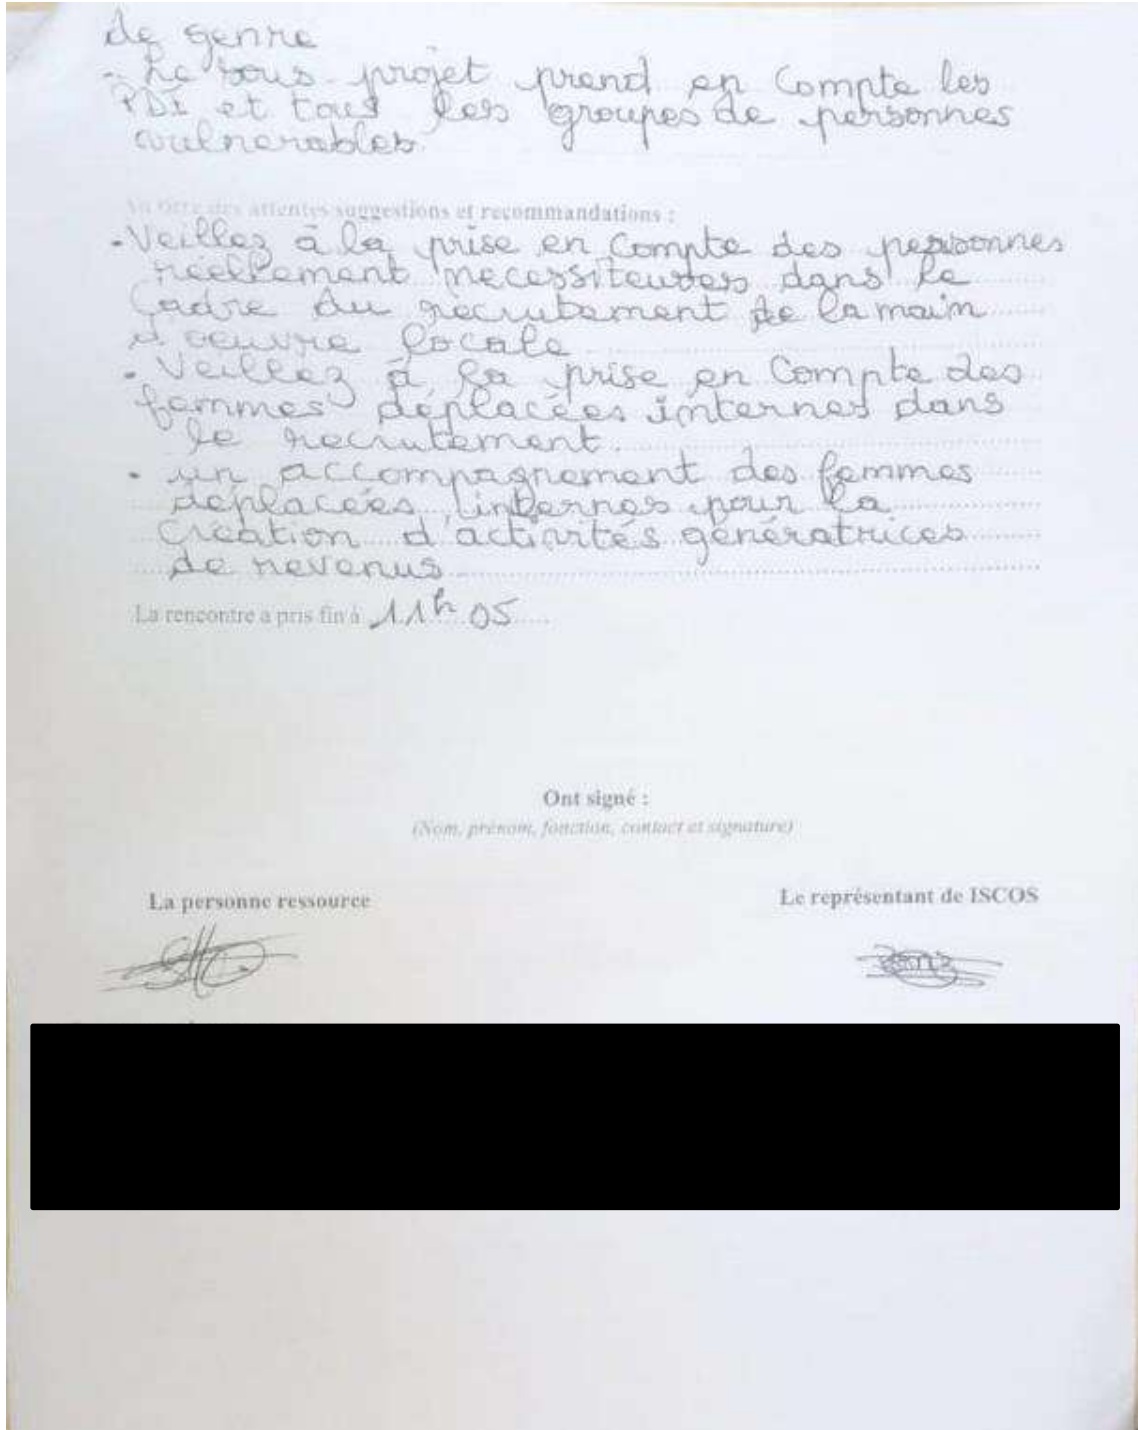 de genre
- Le sous-projet prend en compte les
PDI et tous les groupes de personnes
vulnerables.
Au titre des attentes suggestions et recommandations :
- Veillez à la prise en compte des personnes
réellement necessiteuses dans le
Cadre du recrutement de la main
d'oeuvre locale
- Veillez à la prise en Compte des
femmes déplacées internes dans
le recrutement.
- un accompagnement des femmes
déplacées internes pour la
Création d'activités génératrices
de revenus
La rencontre a pris fin à 11h 05
Ont signé :
(Nom, prénom, fonction, contact et signature)
La personne ressource
Le représentant de ISCOS